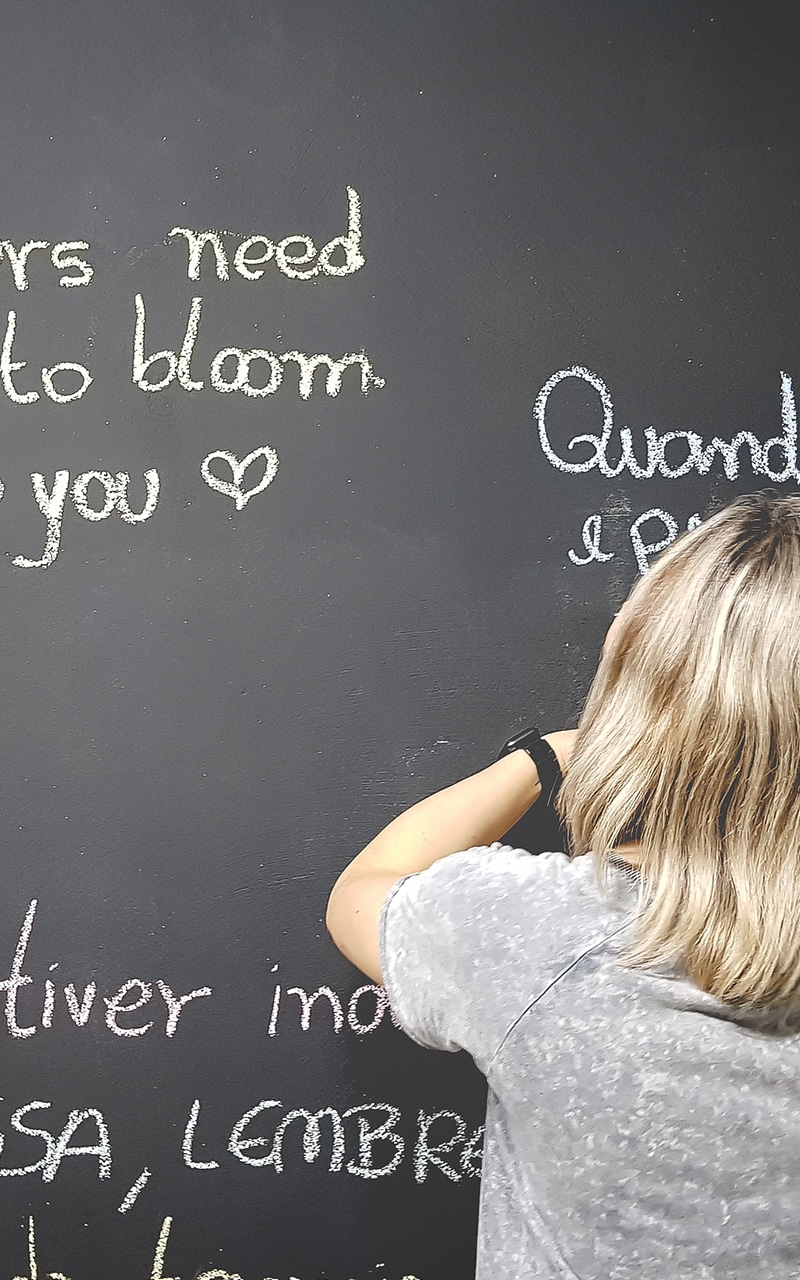 rs need
to bloom.
you ♡
Quand
e
tiver ino
SSA, LEMBRE